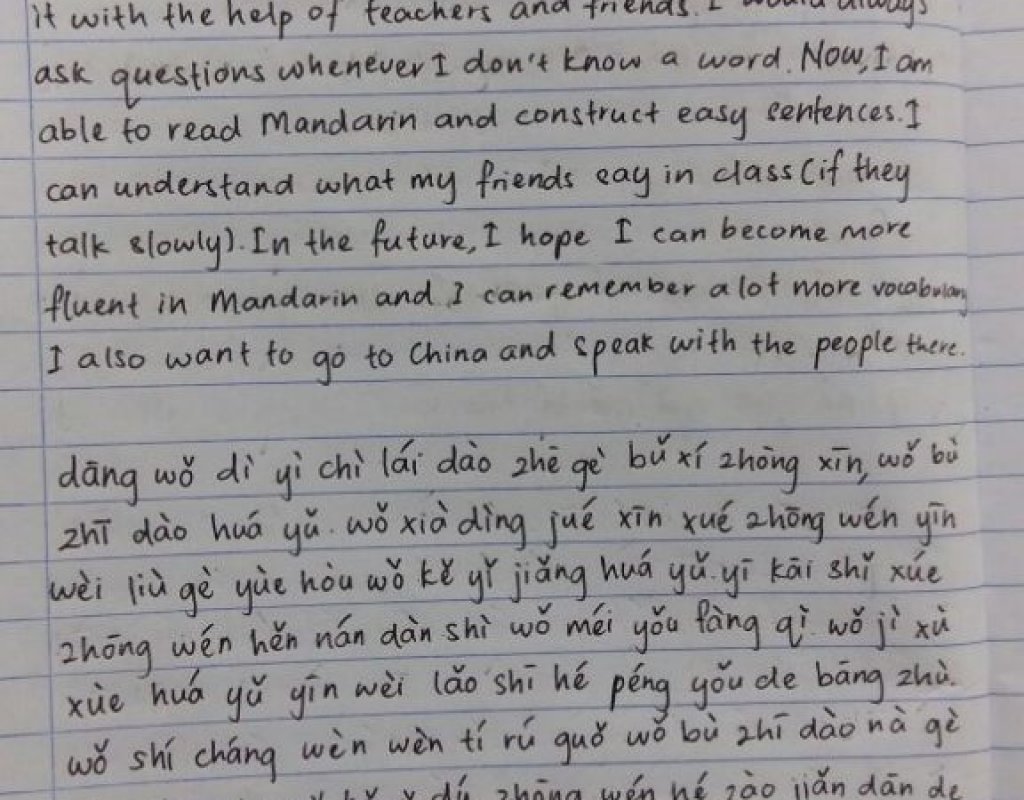 it with the help of teachers and friends. I would always
ask questions whenever I don't know a word. Now, I am
able to read Mandarin and construct easy sentences. I
can understand what my friends say in class (if they
talk slowly). In the future, I hope I can become more
fluent in Mandarin and I can remember a lot more vocabulary
I also want to go to China and speak with the people there.
dāng wǒ dì yì chì lái dào zhē gè bǔ xí zhōng xīn, wǒ bù
zhī dào huá yǔ. wǒ xià dìng jué xīn xué zhōng wén yīn
wèi liù gè yùe hòu wǒ kě yǐ jiǎng huá yǔ. yī kāi shǐ xúe
zhōng wén hěn nán dàn shì wǒ méi yǒu fàng qì. wǒ jì xù
xùe huá yǔ yīn wèi lǎo shī hé péng yǒu de bāng zhù.
wǒ shí cháng wèn wèn tí rú guǒ wǒ bù zhī dào nà gè
dú zhōng wén hé zào jiǎn dān de